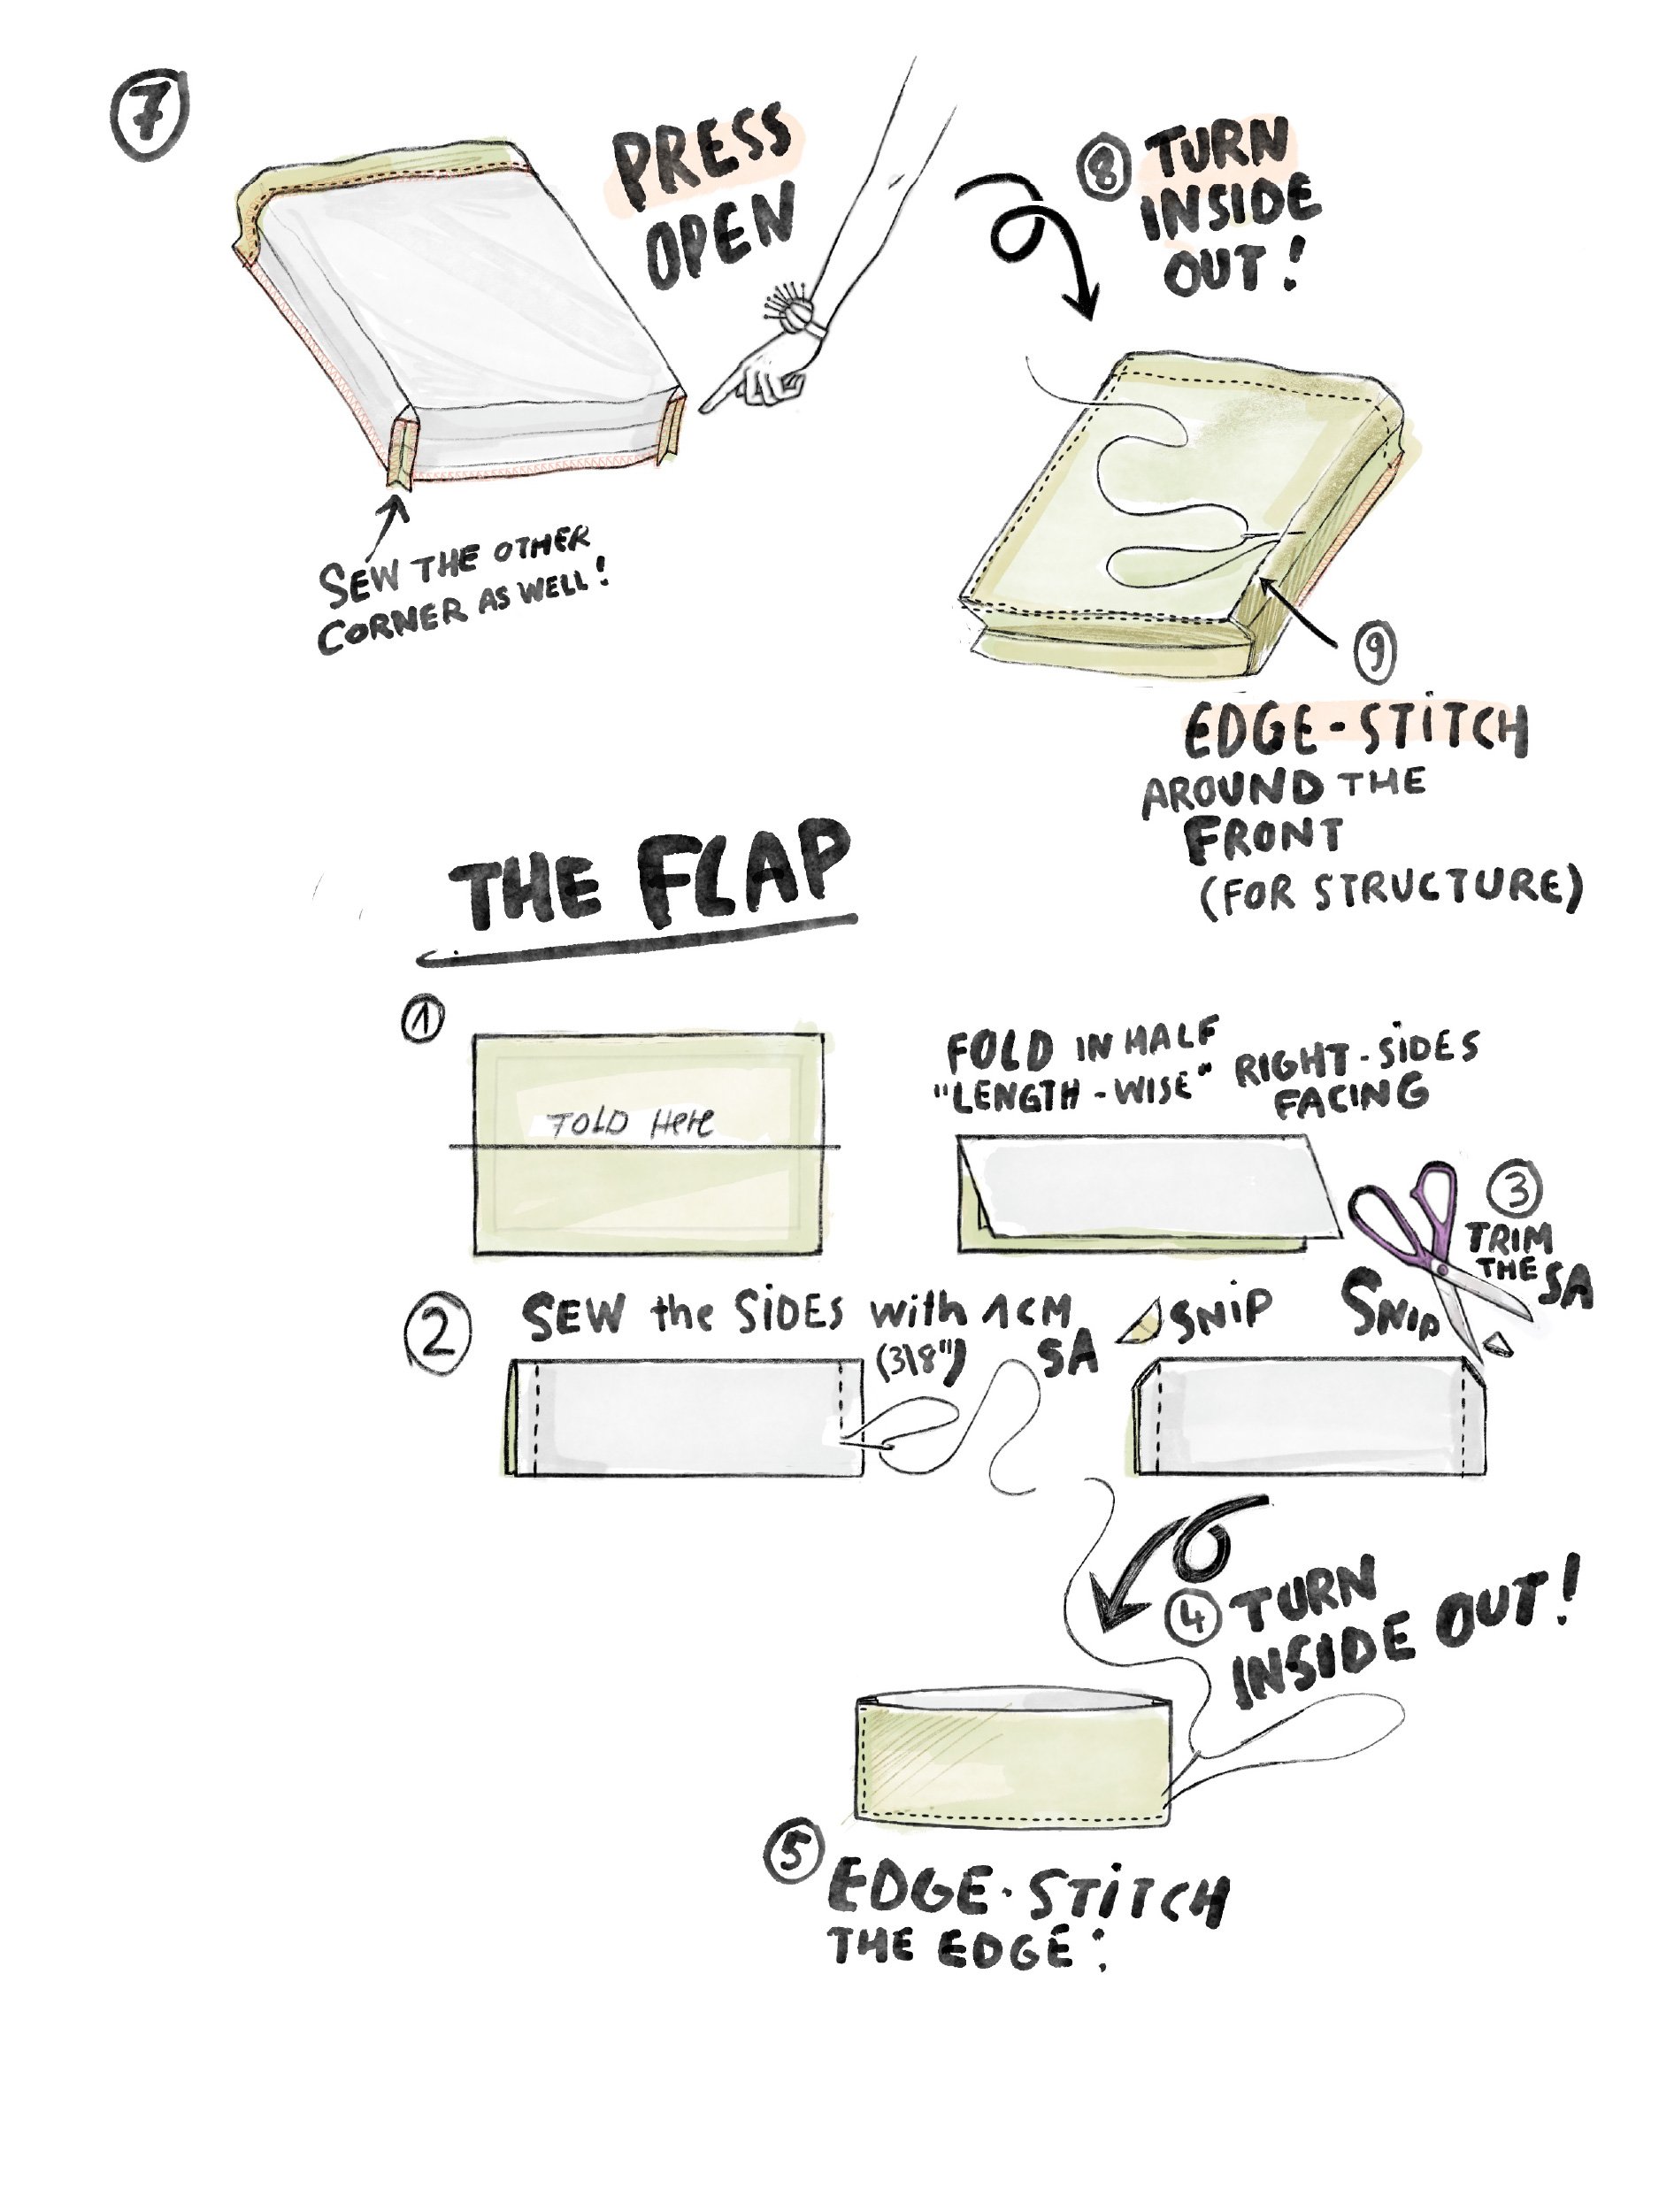 7
PRESS
OPEN
SEW THE OTHER
CORNER AS WELL!
8 TURN
INSIDE
OUT!
9
EDGE-STITCH
AROUND THE
FRONT
(FOR STRUCTURE)
THE FLAP
1
FOLD HERE
FOLD IN HALF
"LENGTH-WISE"
RIGHT-SIDES
FACING
2 SEW the SIDES with 1CM
(3\8")
SA
3
TRIM
THE SA
SNIP
SNIP
4 TURN
INSIDE OUT!
5 EDGE-STITCH
THE EDGE: